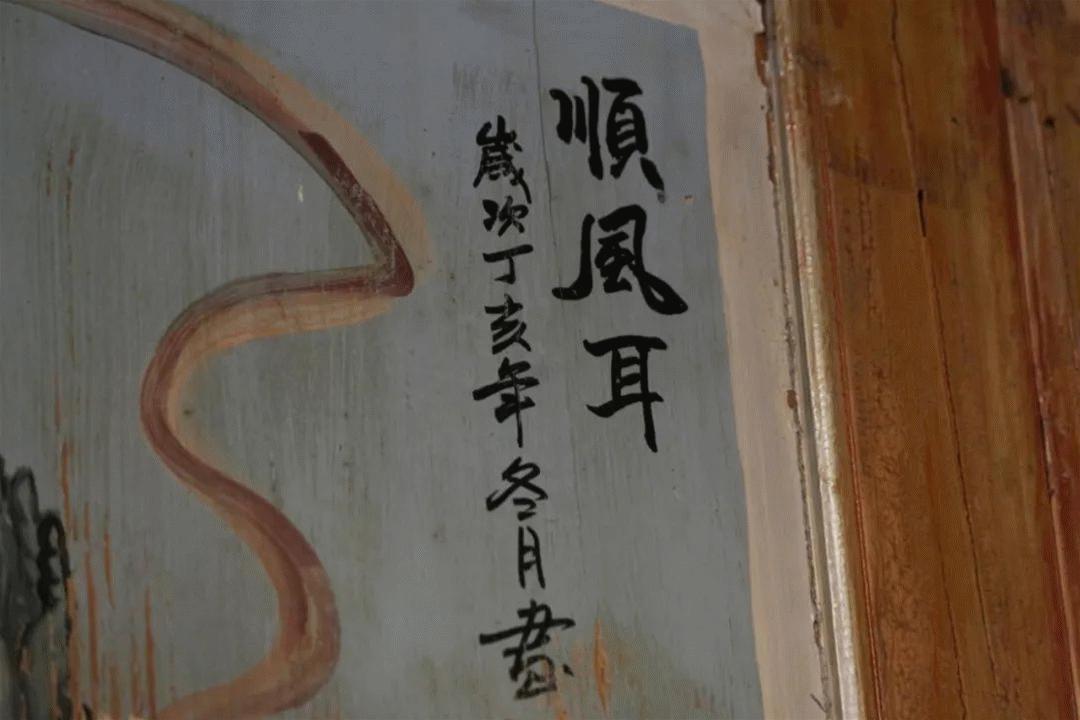 順風耳
歲次丁亥年冬月畫